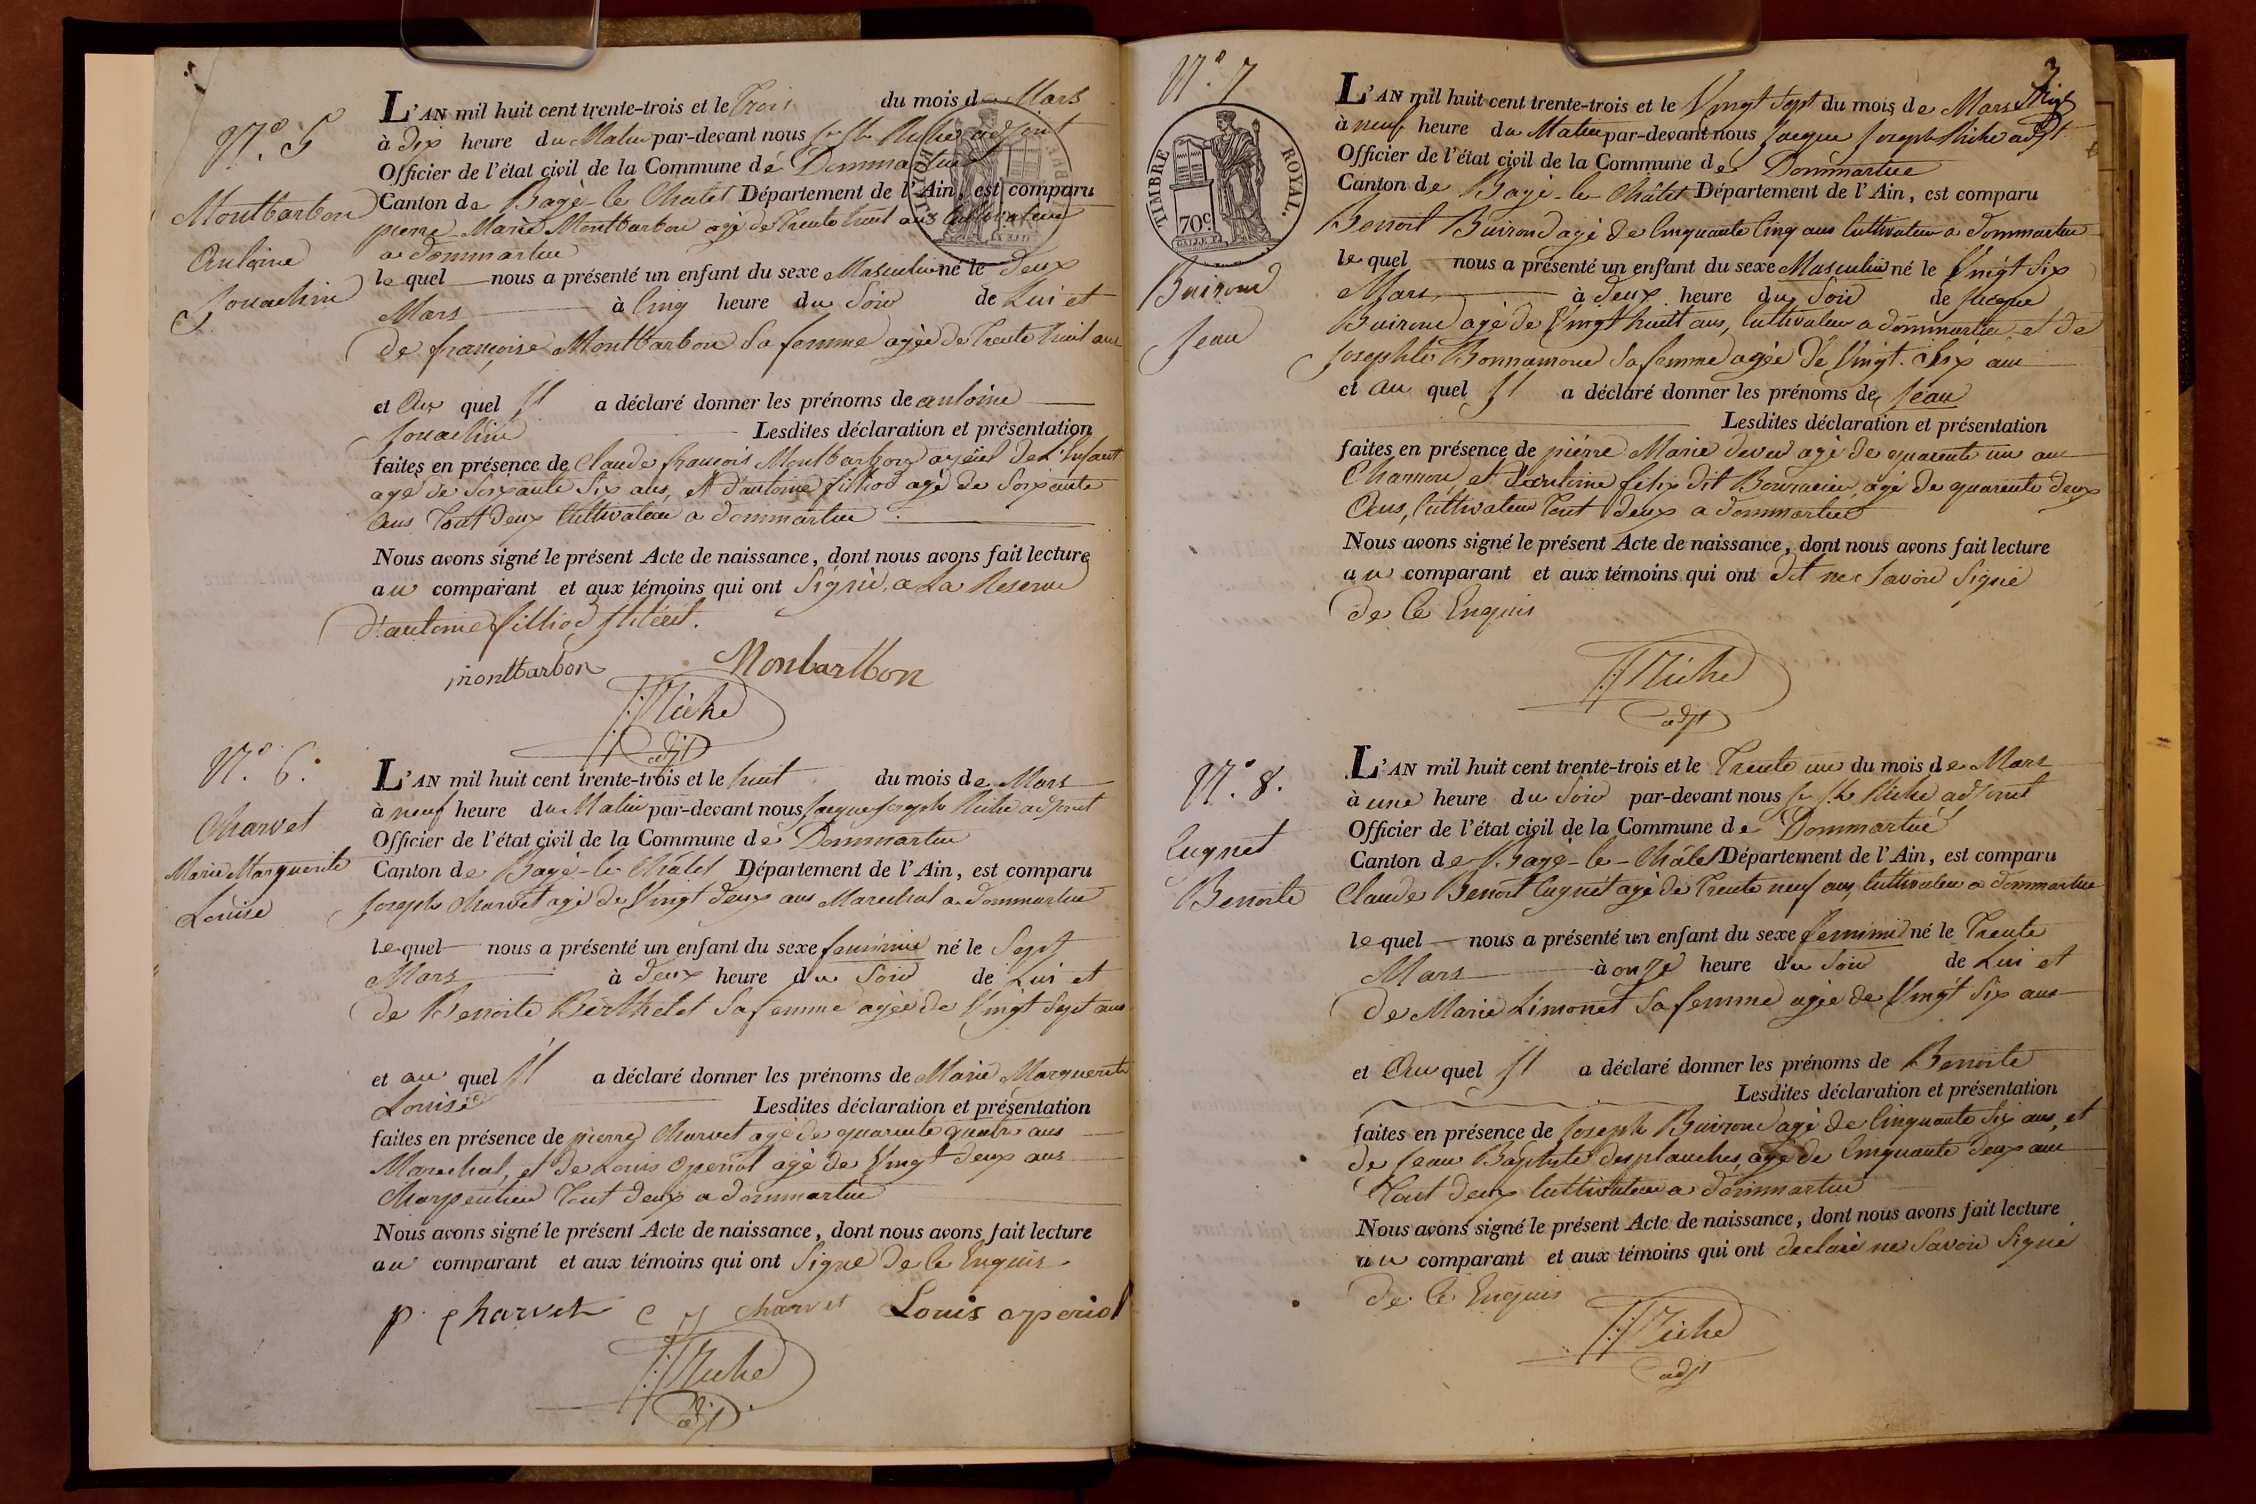 N.º 5
Montbarbon
Antoine
Jouachin
L'AN mil huit cent trente-trois et le Trois du mois de Mars
à Dix heure du Matin par-devant nous Jq Jh Niche adjoint
Officier de l'état civil de la Commune de Dommartin
Canton de Bagé-le Chatel Département de l'Ain, est comparu
pierre Marie Montbarbon agé de Trente huit ans Cultivateur
a dommartin
le quel nous a présenté un enfant du sexe Masculin né le deux
Mars à Cinq heure du Soir de Lui et
de françoise Montbarbon Sa femme agée de Trente huit ans
et Au quel Il a déclaré donner les prénoms de antoine
Jouachin Lesdites déclaration et présentation
faites en présence de Claude françois Montbarbon ayeül de L'Enfant
agé de Soixante Six ans, et d'antoine filliod agé de Soixante
Ans Tout deux Cultivateur a dommartin
Nous avons signé le présent Acte de naissance, dont nous avons fait lecture
au comparant et aux témoins qui ont Signé, a La Reserve
d'antoine filliod Illitéré.
montbarbon Monbarbon
Niche
adjt
N.º 6.
Charvet
Marie Marguerite
Louise
L'AN mil huit cent trente-trois et le huit du mois de Mars
à neuf heure du Matin par-devant nous Jacque Joseph Niche adjoint
Officier de l'état civil de la Commune de Dommartin
Canton de Bagé-le Châtel Département de l'Ain, est comparu
Joseph Charvet agé de Vingt deux ans Marechal a dommartin
le quel nous a présenté un enfant du sexe feminin né le Sept
Mars à deux heure du Soir de Lui et
de Benoite Berthelet Sa femme agée de Vingt Sept ans
et au quel Il a déclaré donner les prénoms de Marie Marguerite
Louise Lesdites déclaration et présentation
faites en présence de pierre Charvet agé de quarante quatre ans
Marechal, et de Louis Operiol agé de Vingt deux ans
Charpentier Tout deux a dommartin
Nous avons signé le présent Acte de naissance, dont nous avons fait lecture
au comparant et aux témoins qui ont Signé de Ce Enquis
p. Charvet C J Charvet Louis operiol
Niche
adjt
3
N.º 7
TIMBRE ROYAL.
70c.
Buiroud
Jean
L'AN mil huit cent trente-trois et le Vingt Sept du mois de Mars
à neuf heure du Matin par-devant nous Jacque Joseph Niche adjt
Officier de l'état civil de la Commune de Dommartin
Canton de Bagé-le Châtel Département de l'Ain, est comparu
Benoit Buiroud agé de Cinquante Cinq ans Cultivateur a dommartin
le quel nous a présenté un enfant du sexe Masculin né le Vingt Six
Mars à deux heure du Soir de Jacque
Buiroud agé de Vingt huit ans, Cultivateur a dommartin, et de
Josephte Bonnamour Sa femme agée de Vingt-Six ans
et au quel Il a déclaré donner les prénoms de Jean
Lesdites déclaration et présentation
faites en présence de pierre Marie deveu agé de quarente un ans
et d'antoine felix dit Bouracier, agé de quarente deux
Ans, Cultivateur Tout deux a dommartin
Nous avons signé le présent Acte de naissance, dont nous avons fait lecture
au comparant et aux témoins qui ont dit ne Savoir Signé
de Ce Enquis
Niche
adjt
N.º 8.
Cugnet
Benoite
L'AN mil huit cent trente-trois et le Trente un du mois de Mars
à une heure du Soir par-devant nous Jq Jh Niche adjoint
Officier de l'état civil de la Commune de Dommartin
Canton de Bagé-le-Châtel Département de l'Ain, est comparu
Claude Benoit Cugnet agé de Trente neuf ans, Cultivateur a dommartin
le quel nous a présenté un enfant du sexe feminin né le Trente
Mars à onze heure du Soir de Lui et
de Marie Limonet Sa femme agée de Vingt Six ans
et Au quel Il a déclaré donner les prénoms de Benoite
Lesdites déclaration et présentation
faites en présence de Joseph Buiroud agé de Cinquante Six ans, et
de Jean Baptiste desplanches, agé de Cinquante deux ans
Tout deux Cultivateur a dommartin
Nous avons signé le présent Acte de naissance, dont nous avons fait lecture
au comparant et aux témoins qui ont declaré ne Savoir Signé
de Ce Enquis
Niche
adjt